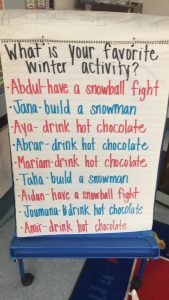 What is your favorite
winter activity?
-Abdul-have a snowball fight
-Jana-build a snowman
-Aya-drink hot chocolate
-Abrar-drink hot chocolate
-Mariam-drink hot chocolate
-Taha-build a snowman
-Aidan-have a snowball fight
-Joumana-drink hot chocolate
-Amir-drink hot chocolate